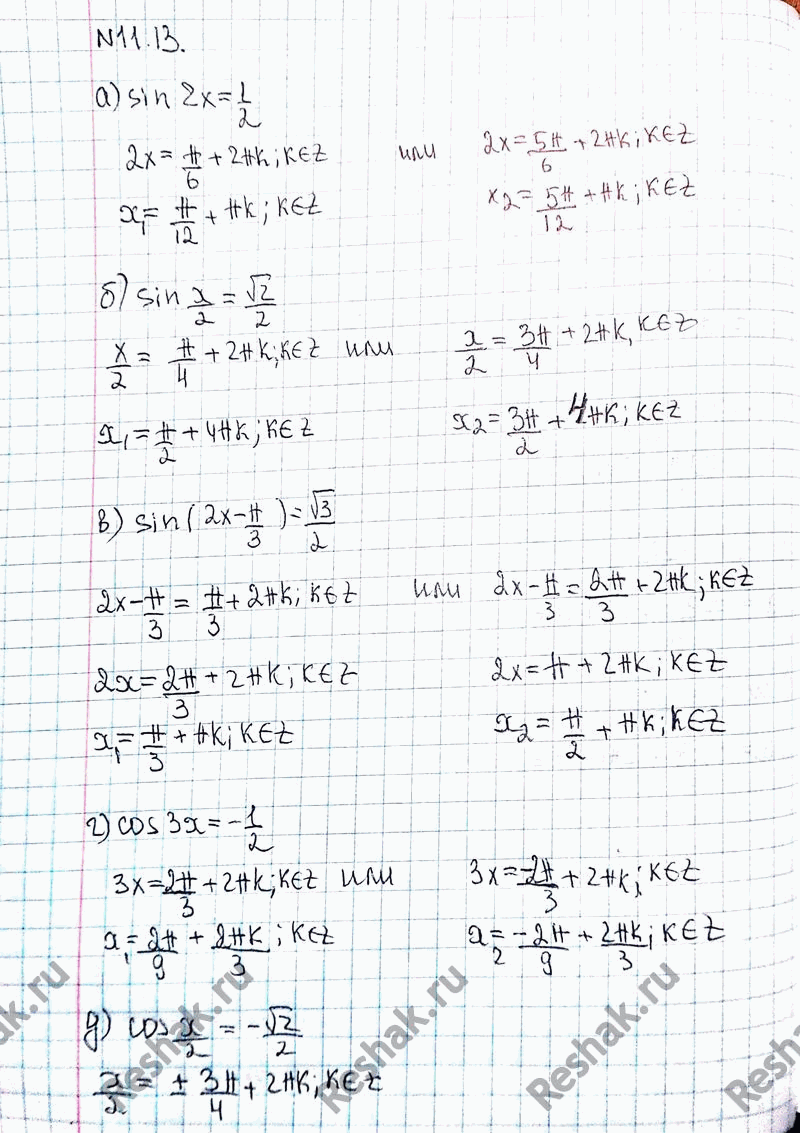 N11.13.
а) sin 2x = 1/2
2x = π/6 + 2πk; k∈Z или 2x = 5π/6 + 2πk; k∈Z
x₁ = π/12 + πk; k∈Z x₂ = 5π/12 + πk; k∈Z
б) sin x/2 = √2/2
x/2 = π/4 + 2πk; k∈Z или x/2 = 3π/4 + 2πk, k∈Z
x₁ = π/2 + 4πk; k∈Z x₂ = 3π/2 + 4πk; k∈Z
в) sin(2x - π/3) = √3/2
2x - π/3 = π/3 + 2πk; k∈Z или 2x - π/3 = 2π/3 + 2πk; k∈Z
2x = 2π/3 + 2πk; k∈Z 2x = π + 2πk; k∈Z
x₁ = π/3 + πk; k∈Z x₂ = π/2 + πk; k∈Z
г) cos 3x = -1/2
3x = 2π/3 + 2πk; k∈Z или 3x = -2π/3 + 2πk; k∈Z
x₁ = 2π/9 + 2πk/3; k∈Z x₂ = -2π/9 + 2πk/3; k∈Z
д) cos x/2 = -√2/2
x/2 = ± 3π/4 + 2πk; k∈Z
Reshak.ru
Reshak.ru
Reshak.ru
Reshak.ru
Reshak.ru